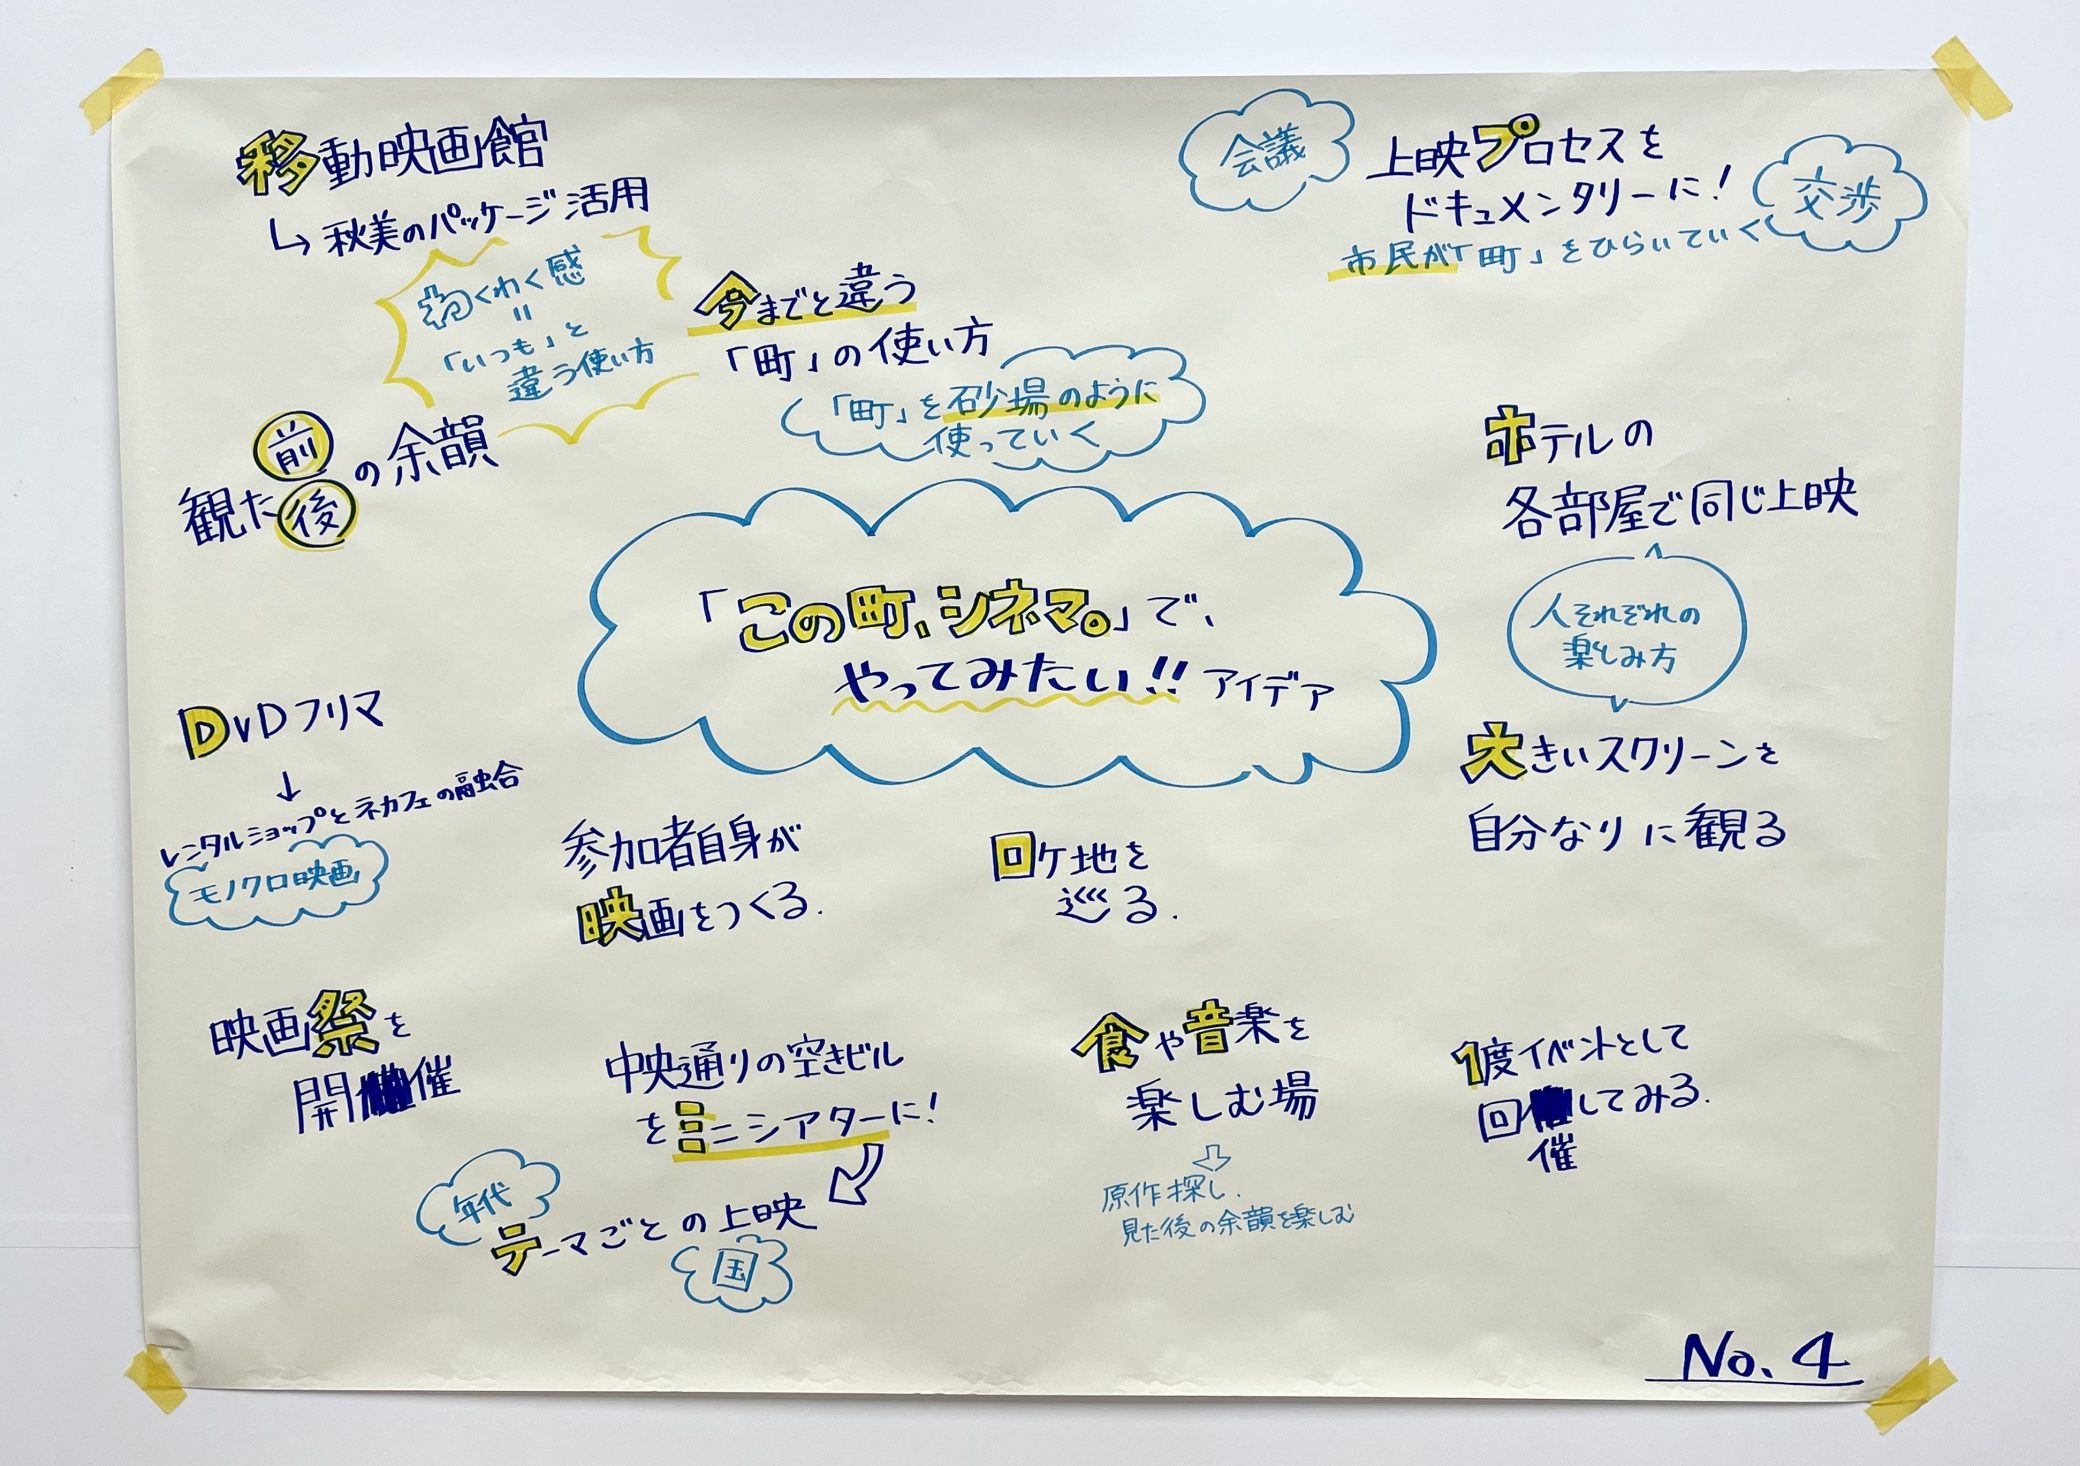 移動映画館
↳ 秋美のパッケージ活用
わくわく感
=
「いつも」と
違う使い方
今までと違う
「町」の使い方
「町」を砂場のように
使っていく
会議
上映プロセスを
ドキュメンタリーに!
交渉
市民が「町」をひらいていく
観た前後の余韻
ホテルの
各部屋で同じ上映
人それぞれの
楽しみ方
大きいスクリーンを
自分なりに観る
「この町、シネマ。」で、
やってみたい!! アイデア
DVDフリマ
↓
レンタルショップとネカフェの融合
モノクロ映画
参加者自身が
映画をつくる.
ロケ地を
巡る.
映画祭を
開催
中央通りの空きビル
をミニシアターに!
年代
テーマごとの上映
国
食や音楽を
楽しむ場
原作探し.
見た後の余韻を楽しむ
1度イベントとして
回してみる.
催
No.4